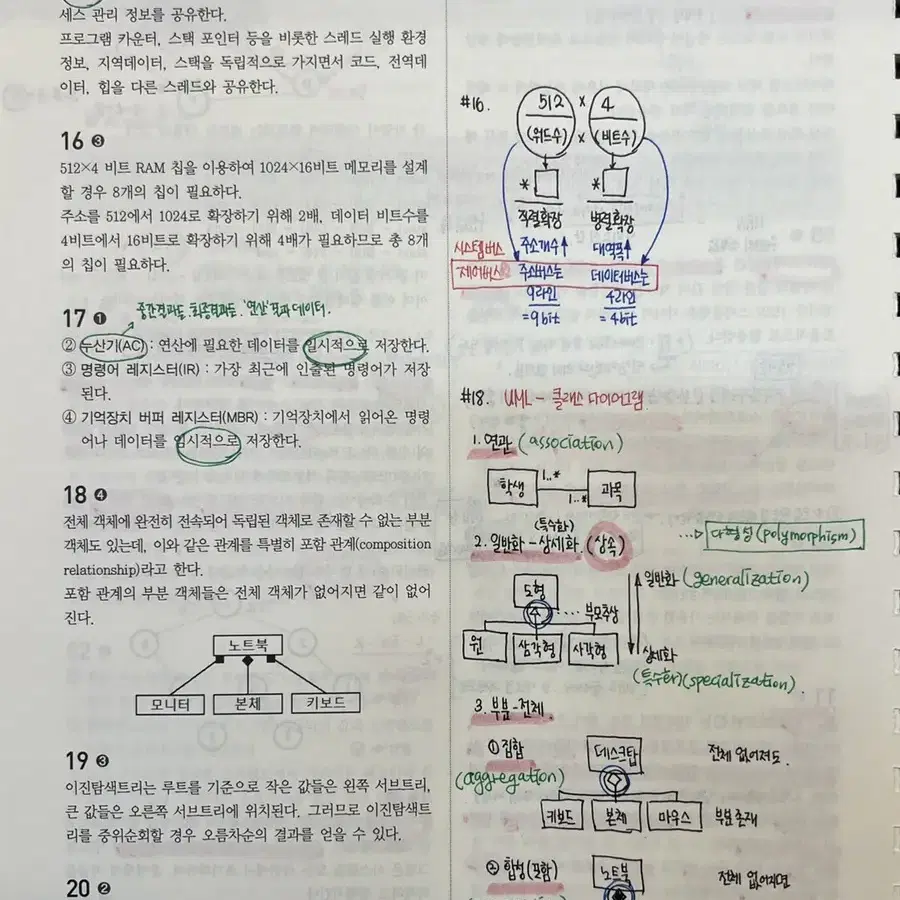 세스 관리 정보를 공유한다.
프로그램 카운터, 스택 포인터 등을 비롯한 스레드 실행 환경
정보, 지역데이터, 스택을 독립적으로 가지면서 코드, 전역데
이터, 힙을 다른 스레드와 공유한다.
16 ❸
512×4 비트 RAM 칩을 이용하여 1024×16비트 메모리를 설계
할 경우 8개의 칩이 필요하다.
주소를 512에서 1024로 확장하기 위해 2배, 데이터 비트수를
4비트에서 16비트로 확장하기 위해 4배가 필요하므로 총 8개
의 칩이 필요하다.
17 ❶
중간결과든 최종결과든 '연산'결과 데이터.
② 누산기(AC) : 연산에 필요한 데이터를 일시적으로 저장한다.
③ 명령어 레지스터(IR) : 가장 최근에 인출된 명령어가 저장
된다.
④ 기억장치 버퍼 레지스터(MBR) : 기억장치에서 읽어온 명령
어나 데이터를 일시적으로 저장한다.
18 ❹
전체 객체에 완전히 전속되어 독립된 객체로 존재할 수 없는 부분
객체도 있는데, 이와 같은 관계를 특별히 포함 관계(composition
relationship)라고 한다.
포함 관계의 부분 객체들은 전체 객체가 없어지면 같이 없어
진다.
노트북
모니터 본체 키보드
19 ❸
이진탐색트리는 루트를 기준으로 작은 값들은 왼쪽 서브트리,
큰 값들은 오른쪽 서브트리에 위치된다. 그러므로 이진탐색트
리를 중위순회할 경우 오름차순의 결과를 얻을 수 있다.
20 ❷
#16. 512 × 4
(워드수) × (비트수)
* *
직렬확장 병렬확장
시스템버스 주소개수↑ 대역폭↑
제어버스 주소버스는 데이터버스는
9라인 4라인
=9bit =4bit
#18. UML - 클래스 다이어그램.
1. 연관 (association)
학생 1..* 1..* 과목
(특수화)
2. 일반화-상세화. (상속) ...▷ 다형성(polymorphism)
일반화 (generalization)
도형 ... 부모추상
원 삼각형 사각형
상세화
(특수화)(specialization).
3. 부분-전체
① 집합 데스크탑 전체 없어져도.
(aggregation)
키보드 본체 마우스 부분존재
② 합성(포함) 노트북 전체 없어지면